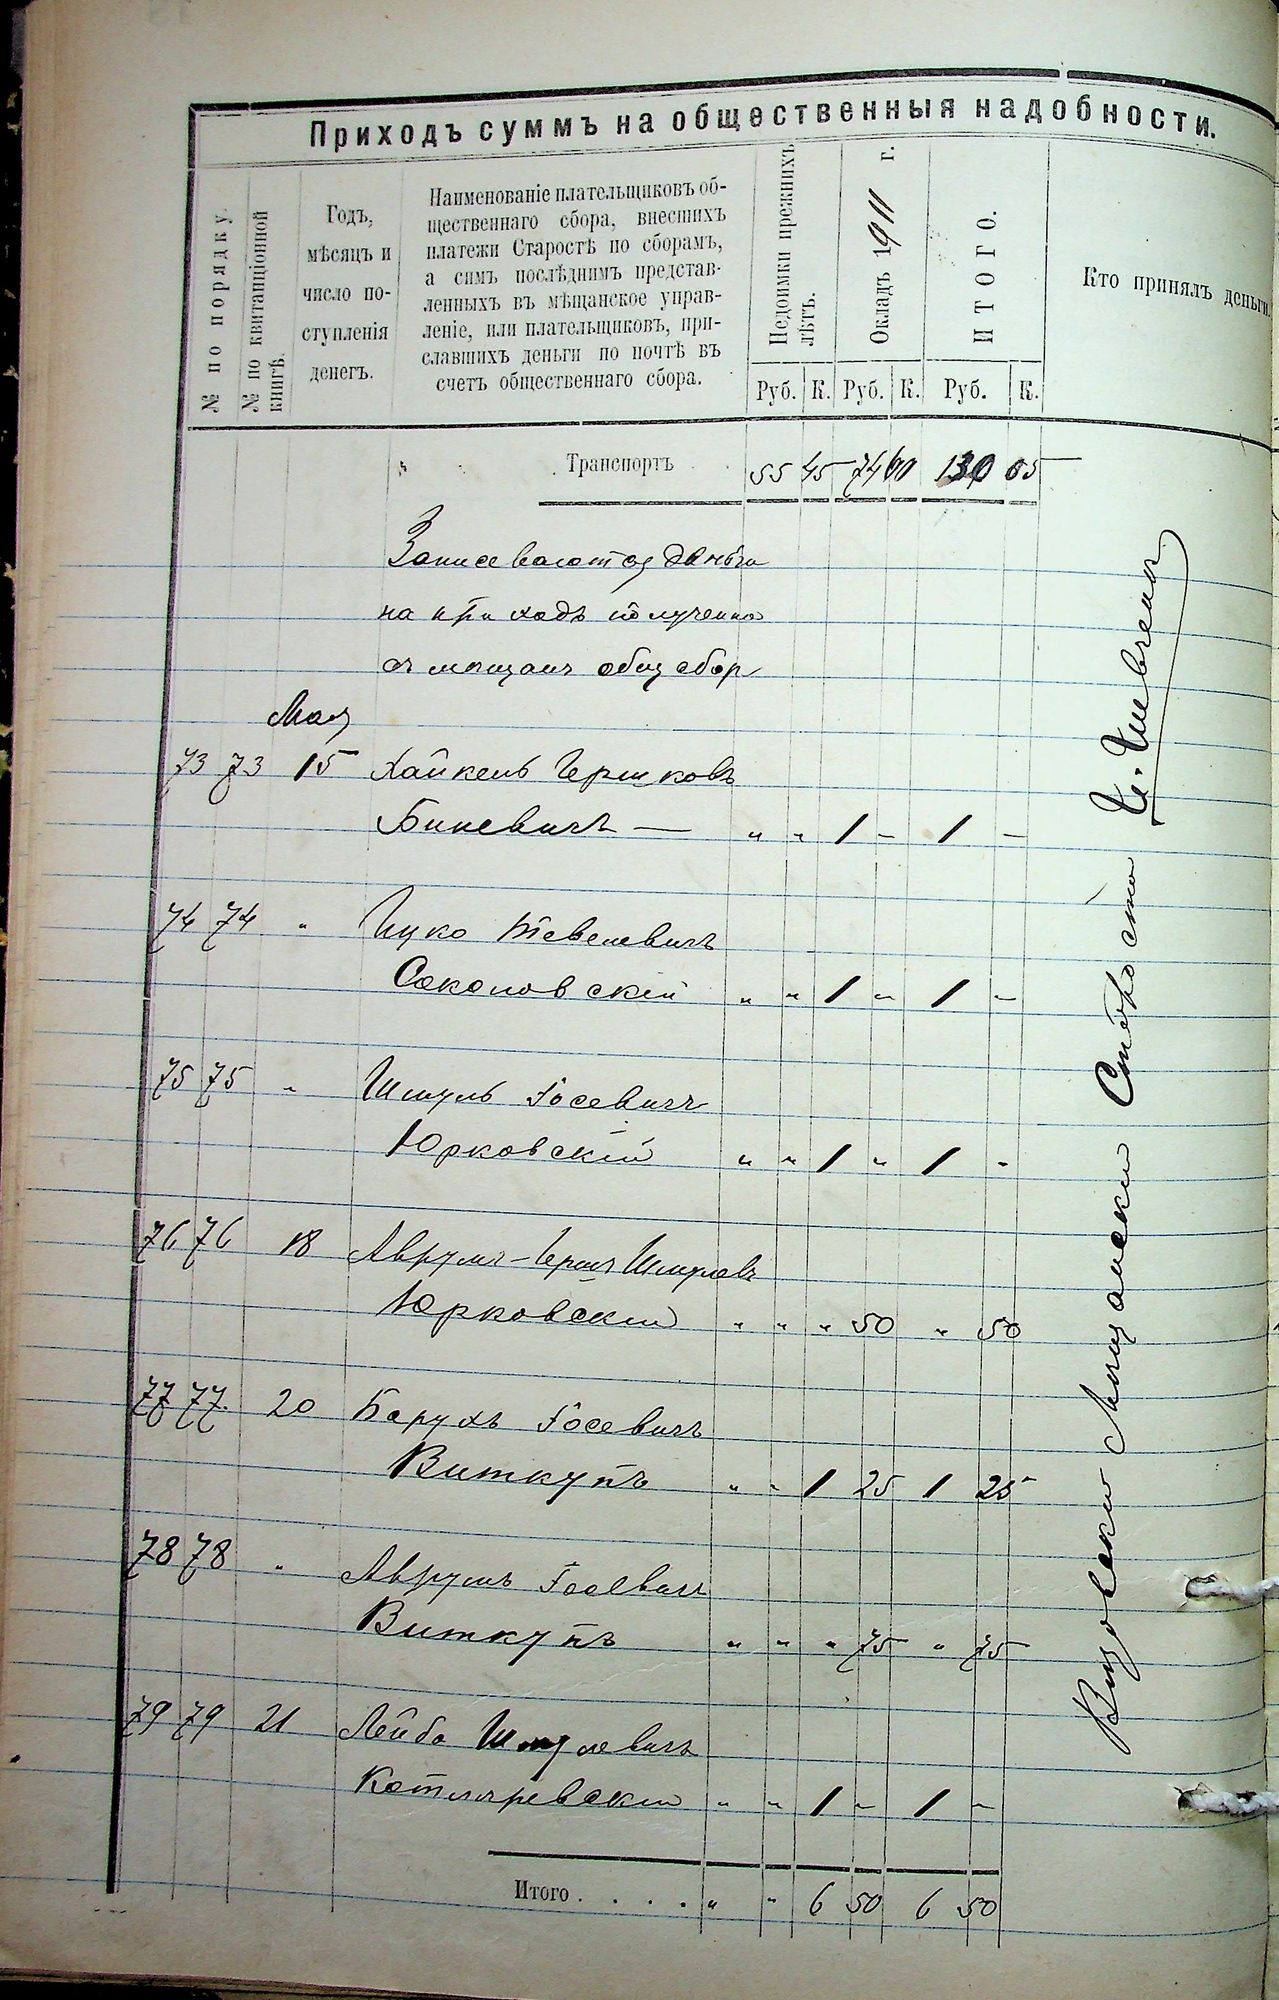 Приходъ суммъ на общественныя надобности.
№ по порядку.
№ по квитанціонной книгѣ.
Годъ,
мѣсяцъ и
число по-
ступленія
денегъ.
Наименованіе плательщиковъ об-
щественнаго сбора, внесшихъ
платежи Старостѣ по сборамъ,
а симъ послѣднимъ представ-
ленныхъ въ мѣщанское управ-
леніе, или плательщиковъ, при-
славшихъ деньги по почтѣ въ
счетъ общественнаго сбора.
Недоимки прежнихъ лѣтъ.
Окладъ 1911 г.
ИТОГО.
Кто принялъ деньги.
Руб. К. Руб. К. Руб. К.
Транспортъ 55 45 74 60 130 05
Записеваются деньги
на приходъ полученно
от мещанъ общ сбор
Мая
73 73 15 Хайкель Гершковъ
Биневичъ — " " 1 - 1 -
74 74 " Ицко Тевелевичъ
Соколовскій " " 1 - 1 -
75 75 " Шмуль Іосевичъ
Юрковскій " " 1 " 1 "
76 76 18 Аврумъ-Гершъ Шмулевъ
Юрковский " " " 50 " 50
77 77. 20 Барухъ Іосевичъ
Виткупъ " " 1 25 1 25
78 78 " Аврумъ
Виткупъ " " " 75 " 75
79 79 21 Лейба Шмулевичъ
Котляревский " " 1 - 1 -
Итого . . . . " " 6 50 6 50
Мещански Староста